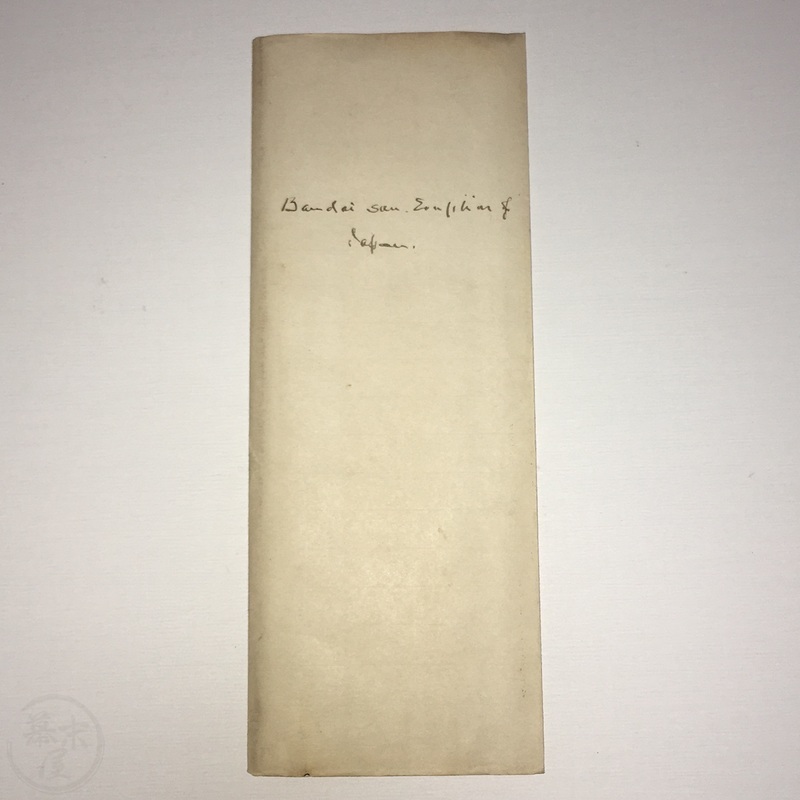 Bandai san. Eruption of
Japan.
幕末屋